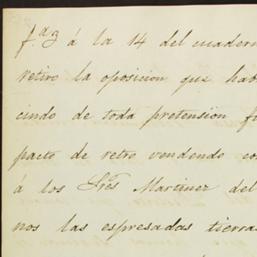 f.ª 3 á la 14 del cuadern
retiro la oposicion que hab
cindo de toda pretension f
pacto de retro vendendo co
á los Sres Martinez del
nos las espresadas tierra